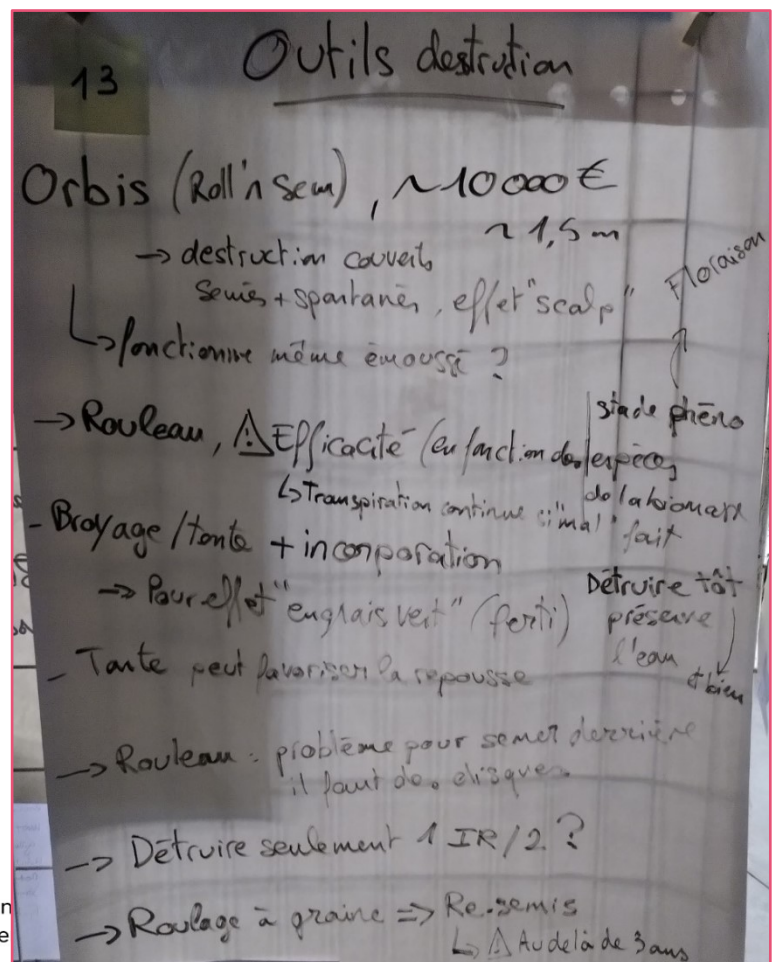 13
Outils destruction
Orbis (Roll'n Sem), ~10 000 €
~ 1,5 m
→ destruction couverts
semés + spontanés, effet "scalp"
Floraison
↳ fonctionne même émoussé ?
stade phéno
→ Rouleau, ⚠ Efficacité (en fonction des espèces
de la biomasse
↳ Transpiration continue si "mal" fait
- Broyage / tonte + incorporation
→ Pour effet "engrais vert" (ferti)
Détruire tôt
préserve
l'eau
et bien
- Tonte peut favoriser la repousse
→ Rouleau : problème pour semer derrière
il faut des disques
→ Détruire seulement 1 IR / 2 ?
→ Roulage à graine => Re-semis
↳ ⚠ Au delà de 3 ans